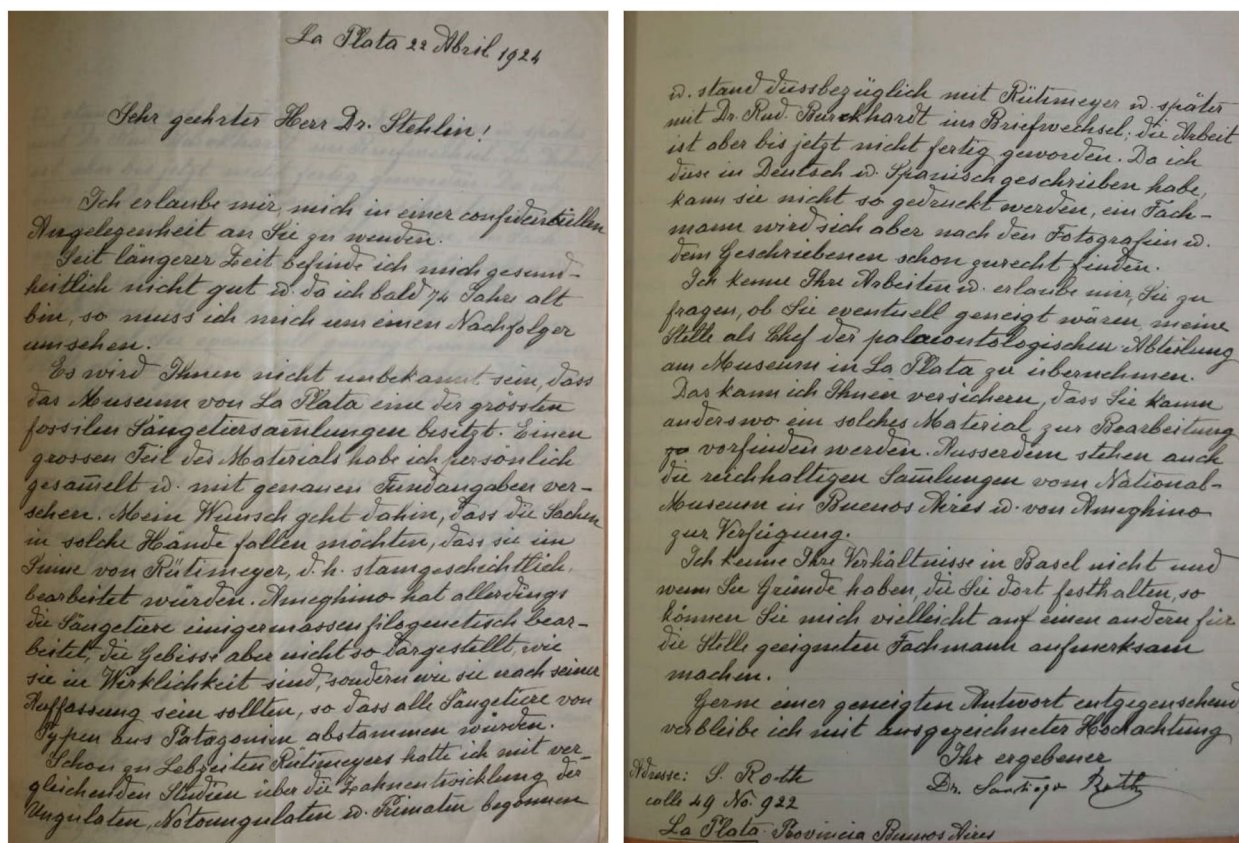 La Plata 22 Abril 1924
Sehr geehrter Herr Dr. Stehlin!
Ich erlaube mir, mich in einer confidentiellen
Angelegenheit an Sie zu wenden.
Seit längerer Zeit befinde ich mich gesund-
heitlich nicht gut u. da ich bald 74 Jahre alt
bin, so muss ich mich um einen Nachfolger
umsehen.
Es wird Ihnen nicht unbekannt sein, dass
das Museum von La Plata eine der grössten
fossilen Säugetiersamlungen besitzt. Einen
grossen Teil des Materials habe ich persönlich
gesam̄elt u. mit genauen Fundangaben ver-
sehen. Mein Wunsch geht dahin, dass die Sachen
in solche Hände fallen möchten, dass sie im
Sinne von Rütimeyer, d.h. stamgeschichtlich,
bearbeitet würden. Ameghino hat allerdings
die Säugetiere einigermassen filogenetisch bear-
beitet, die Gebisse aber nicht so dargestellt, wie
sie in Wirklichkeit sind, sondern wie sie nach seiner
Auffassung sein sollten, so dass alle Säugetiere von
Typen aus Patagonien abstammen würden.
Schon zu Lebzeiten Rütimeyers hatte ich mit ver-
gleichenden Studien über die Zahnentwicklung der
Ungulaten, Notoungulaten u. Primaten begonnen
u. stand diessbezüglich mit Rütimeyer u. später
mit Dr. Rud. Burckhardt im Briefwechsel; die Arbeit
ist aber bis jetzt nicht fertig geworden. Da ich
diese in Deutsch u. Spanisch geschrieben habe,
kann sie nicht so gedruckt werden, ein Fach-
mann wird sich aber nach den Fotografien u.
dem Geschriebenen schon zurecht finden.
Ich kenne Ihre Arbeiten u. erlaube mir, Sie zu
fragen, ob Sie eventuell geneigt wären, meine
Stelle als Chef der palaeontologischen Abteilung
am Museum in La Plata zu übernehmen.
Das kann ich Ihnen versichern, dass Sie kaum
anderswo ein solches Material zur Bearbeitung
vorfinden werden. Ausserdem stehen auch
die reichhaltigen Sam̄lungen vom National-
Museum in Buenos Aires u. von Ameghino
zur Verfügung.
Ich kenne Ihre Verhältnisse in Basel nicht und
wenn Sie Gründe haben, die Sie dort festhalten, so
können Sie mich vielleicht auf einen andern für
die Stelle geeigneten Fachmann aufmerksam
machen.
Gerne einer geneigten Antwort entgegensehend
verbleibe ich mit ausgezeichneter Hochachtung
Ihr ergebener
Dr. Santiago Roth
Adresse: S. Roth
calle 49 No. 922
La Plata. Provincia Buenos Aires